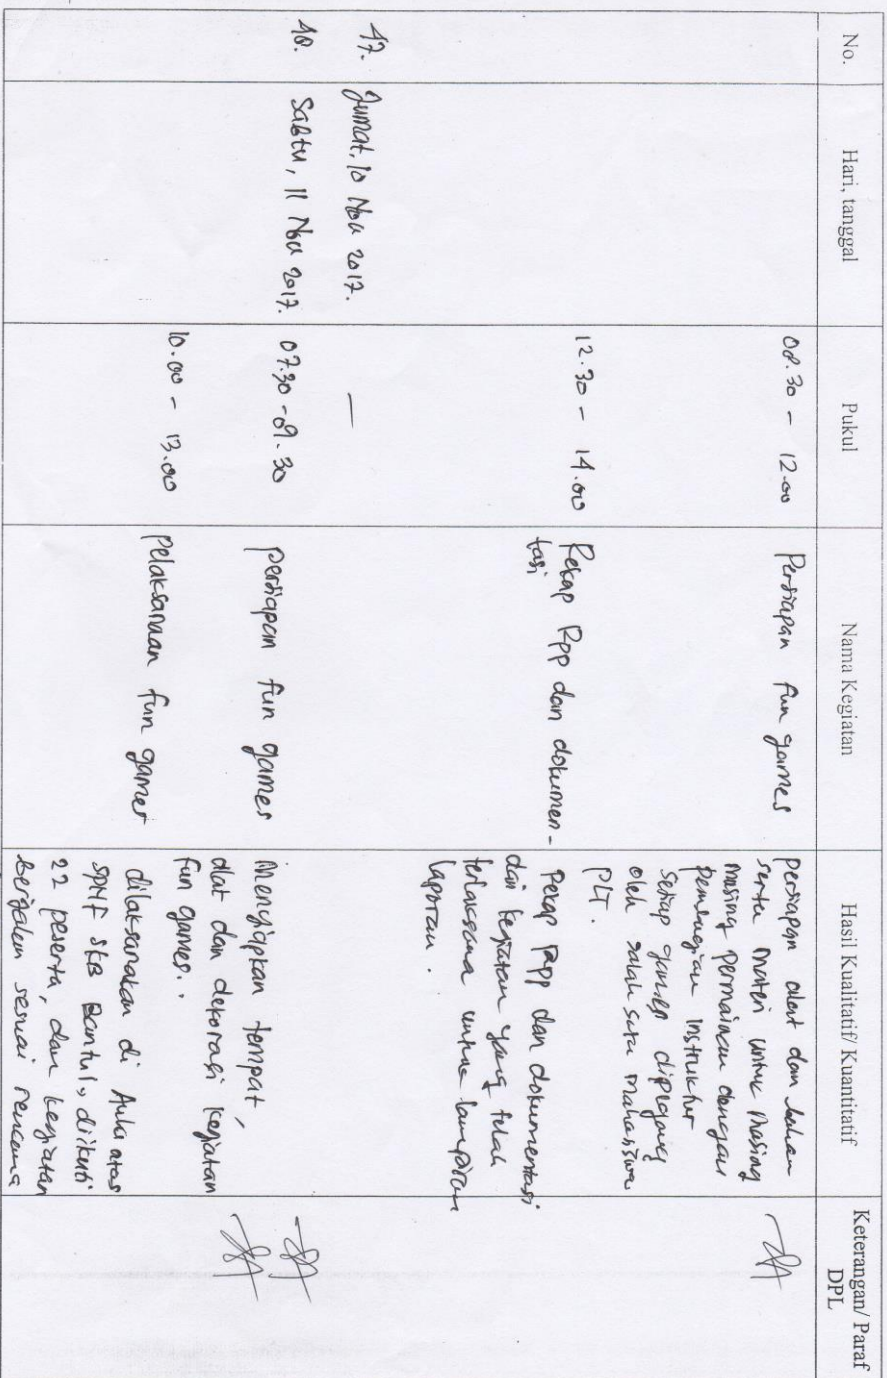 No.
Hari, tanggal
Pukul
Nama Kegiatan
Hasil Kualitatif/ Kuantitatif
Keterangan/ Paraf
DPL
08.30 - 12.00
Persiapan fun games
persiapan alat dan bahan
serta materi untuk masing
masing permainan dengan
pembagian instruktur
setiap games dipegang
oleh salah satu mahasiswa
PLT.
12.30 - 14.00
Rekap Rpp dan dokumen-
tasi
Rekap Rpp dan dokumentasi
dari kegiatan yang telah
terlaksana untuk lampiran
laporan.
47.
Jumat, 10 Nov 2017.
—
48.
Sabtu, 11 Nov 2017.
07.30 - 09.30
persiapan fun games
Menyiapkan tempat,
alat dan dekorasi kegiatan
fun games..
10.00 - 13.00
Pelaksanaan fun games
dilaksanakan di Aula atas
SPNF SKB Bantul, diikuti
22 peserta, dan kegiatan
berjalan sesuai rencana